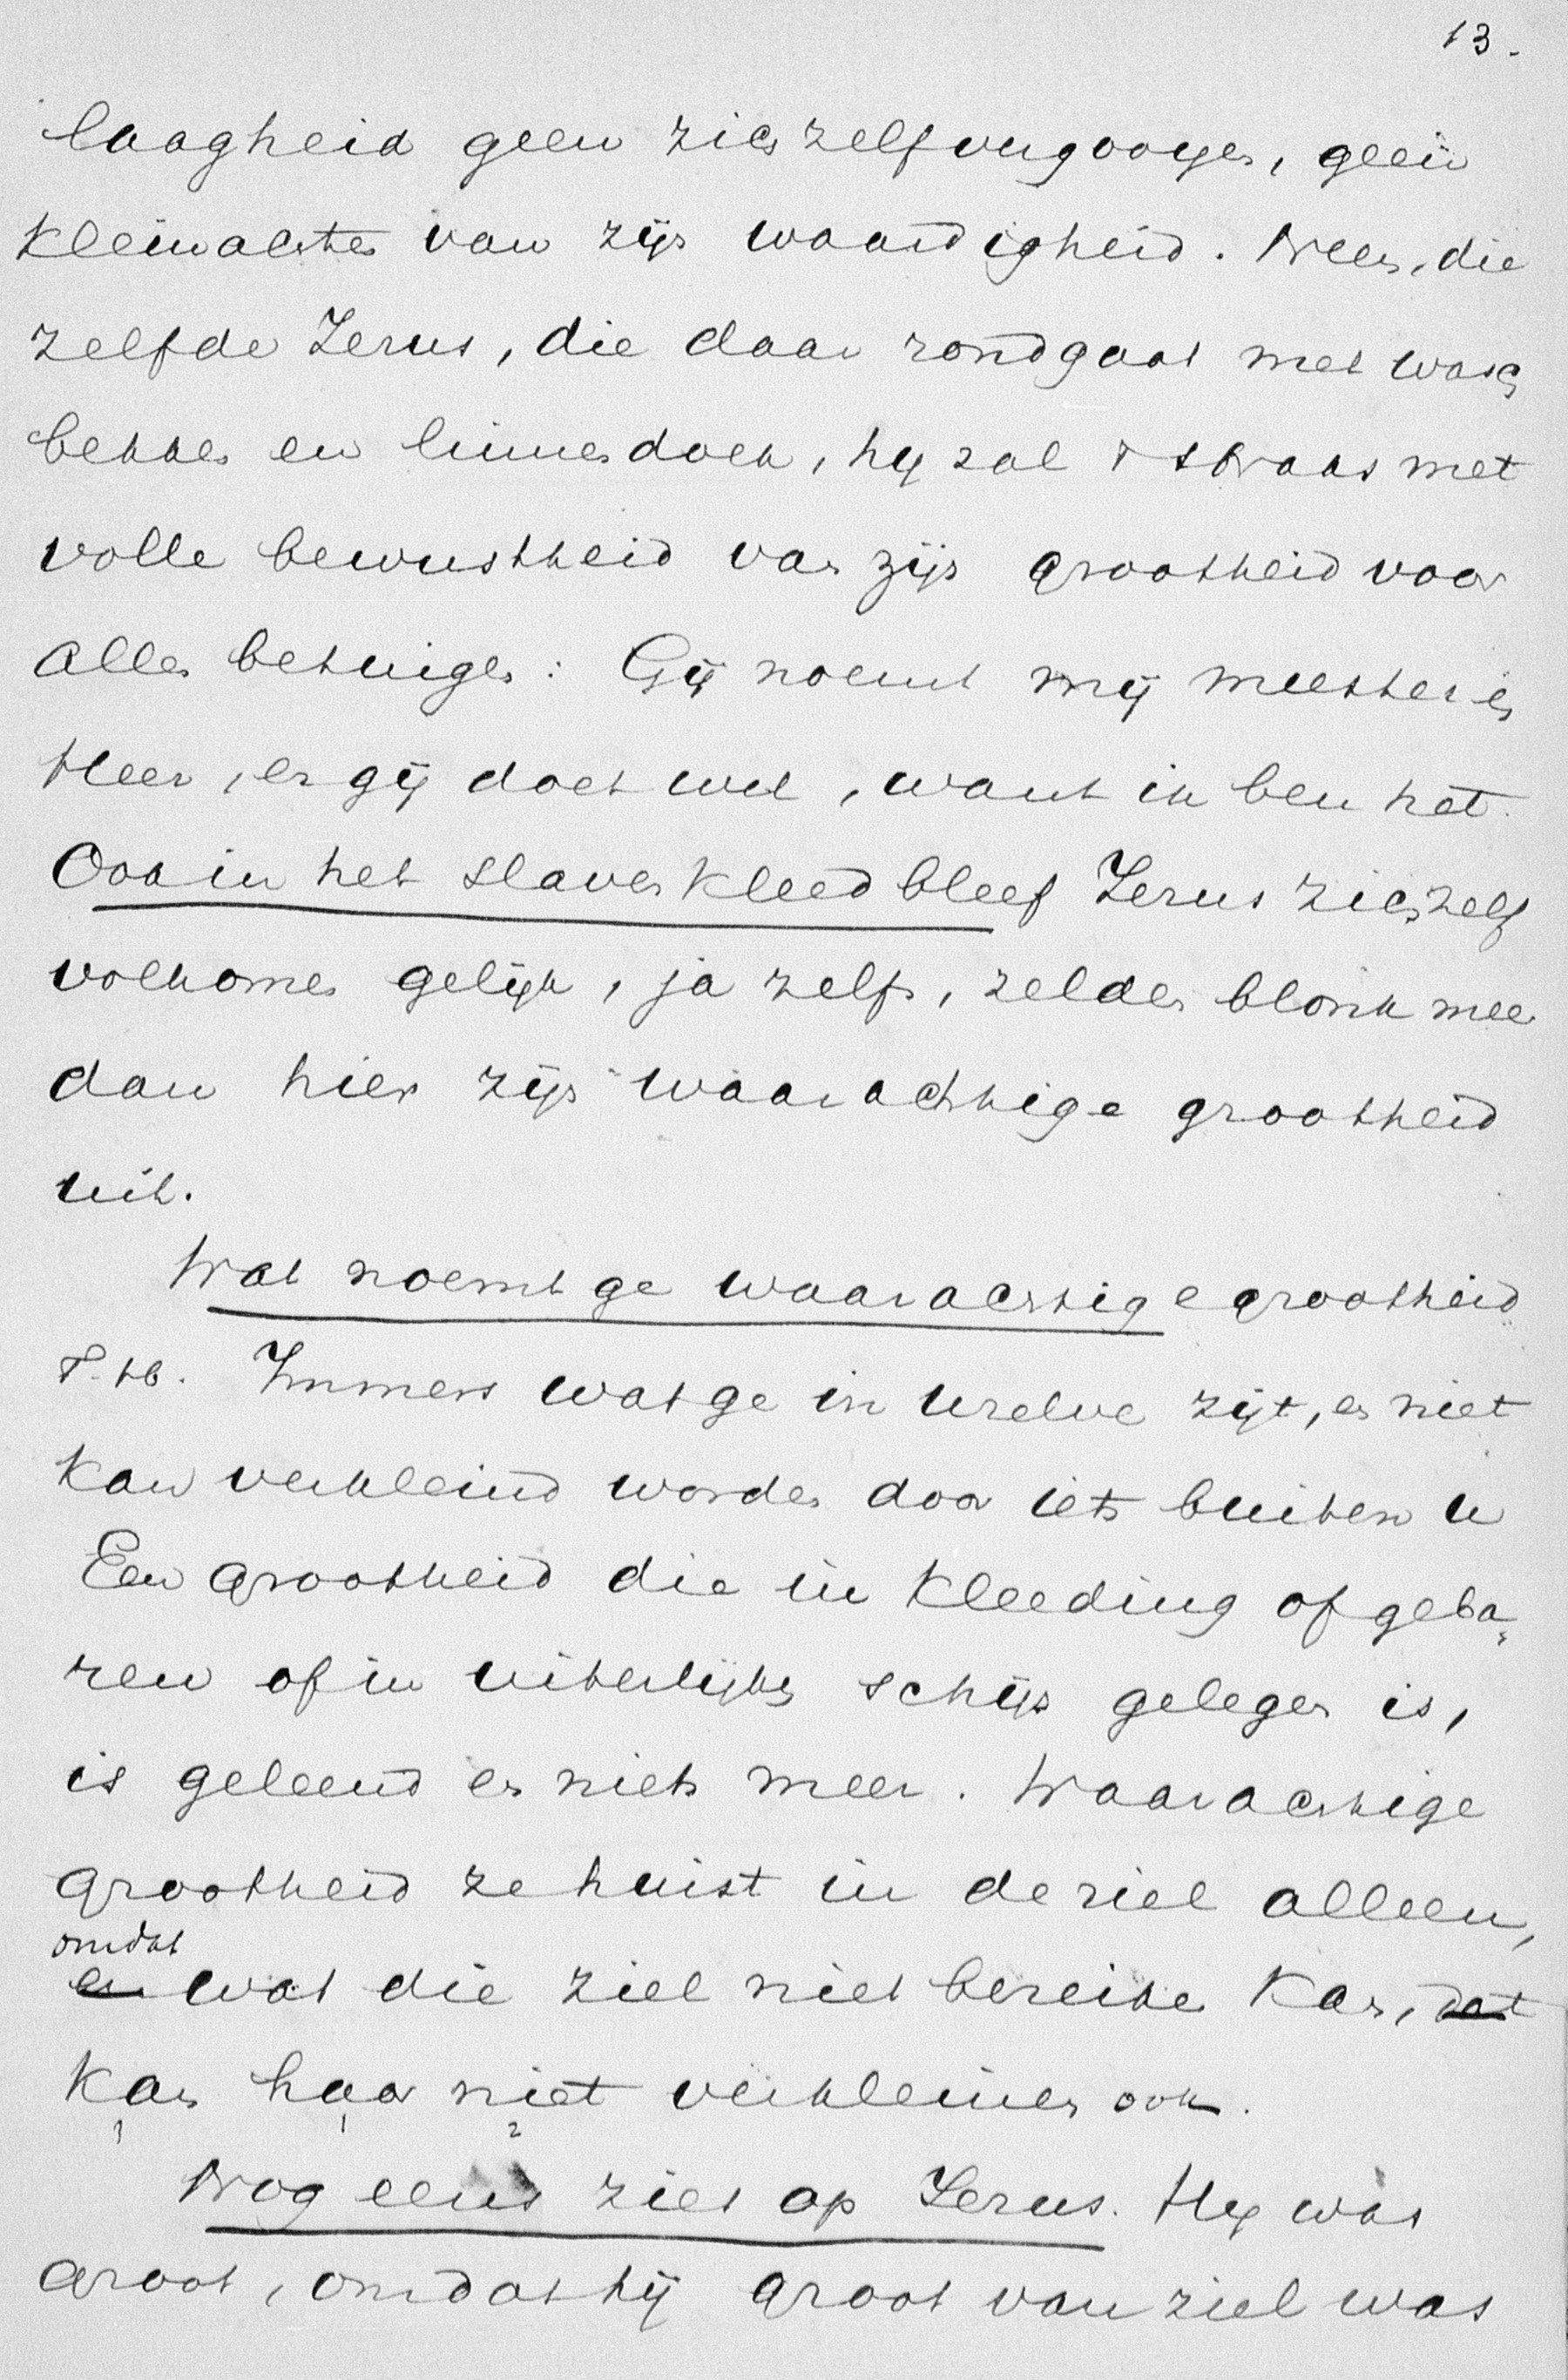 13.
laagheid geen zich zelf vergooyen, geen
kleinachten van zijn waardigheid. Neen, die
zelfde Jezus, die daar rondgaat met wasch
bekken en linnendoek, hy zal straks met
volle bewustheid van zijn grootheid voor
allen betuigen: Gij noemt mij meester en
Heer, en gij doet wel, want ik ben het.
Ook in het slavenkleed bleef Jezus zich zelf
volkomen gelijk, ja zelfs, zelden blonk meer
dan hier zijn waarachtige grootheid
uit.
Wat noemt ge waarachtige grootheid
Immers wat ge in uzelve zijt, en niet
kan verkleind worden door iets buiten u
Een grootheid die in kleeding of geba-
ren of in uiterlijken schijn gelegen is,
is geleend en niets meer. Waarachtige
grootheid ze huist in de ziel alleen,
omdat
en wat die ziel niet bereiken kan, dat
kan haar niet verkleinen ook.
Nog eens ziet op Jezus. Hy was
groot, omdat hij groot van ziel was